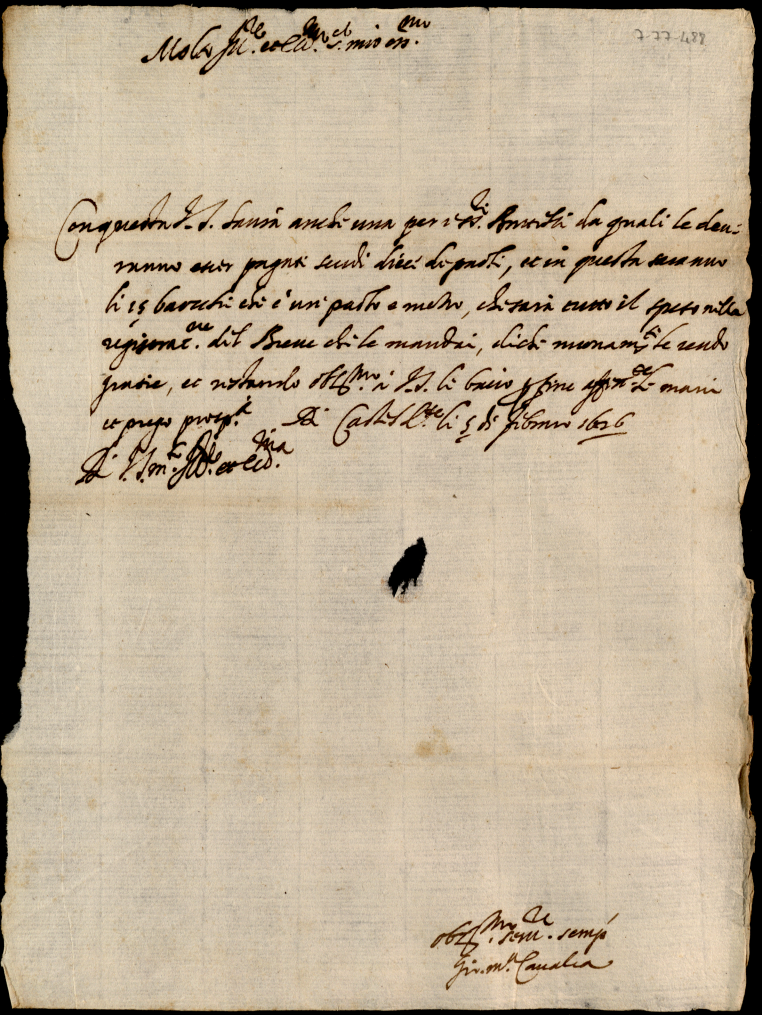 7-77-488
Molto Ill.re et ecc.mo s.r mio oss.mo
Con questa V.S. havrà anche una per i ss.ri da quali le deu:
ranno esser pagati scudi dieci di paoli, et in questa saranno
li 15 baiochi che è un paolo e mezzo, che sarà tutto il speso nella
registrat.ne del Breve che le mandai, di che nuovam.te le rendo
gratie, et restando obl.mo à V.S. li bacio p fine aff.te le mani
et prego prosp.tà Di Castel li 5 di febraro 1626
Di V.S. m.to Ill.re et ecc.ma
obl.mo ser.re semp
Gio. m.a Cavalca